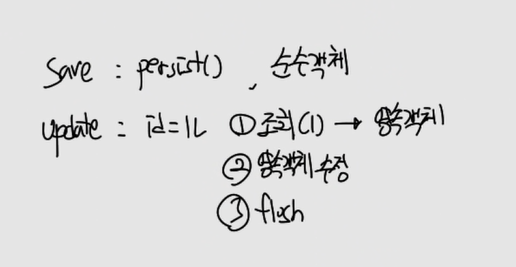 save : persist() , 순수객체
update : id=1L ① 조회(1) → 영속객체
② 영속객체 수정
③ flush